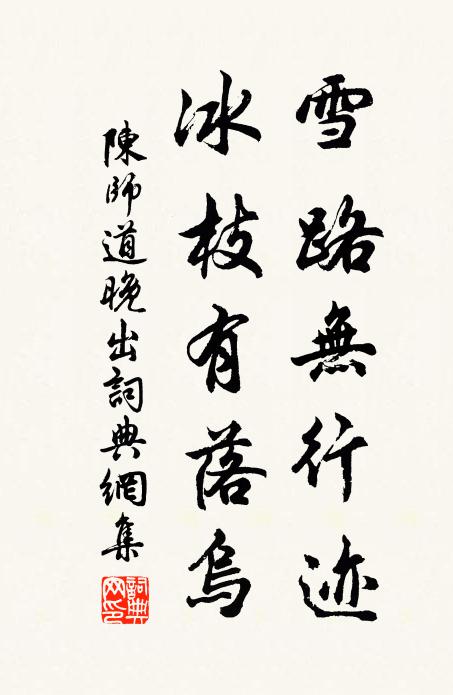 雪路無行迹
冰枝有落烏
陳師道晚出詞典網集
詞典網印